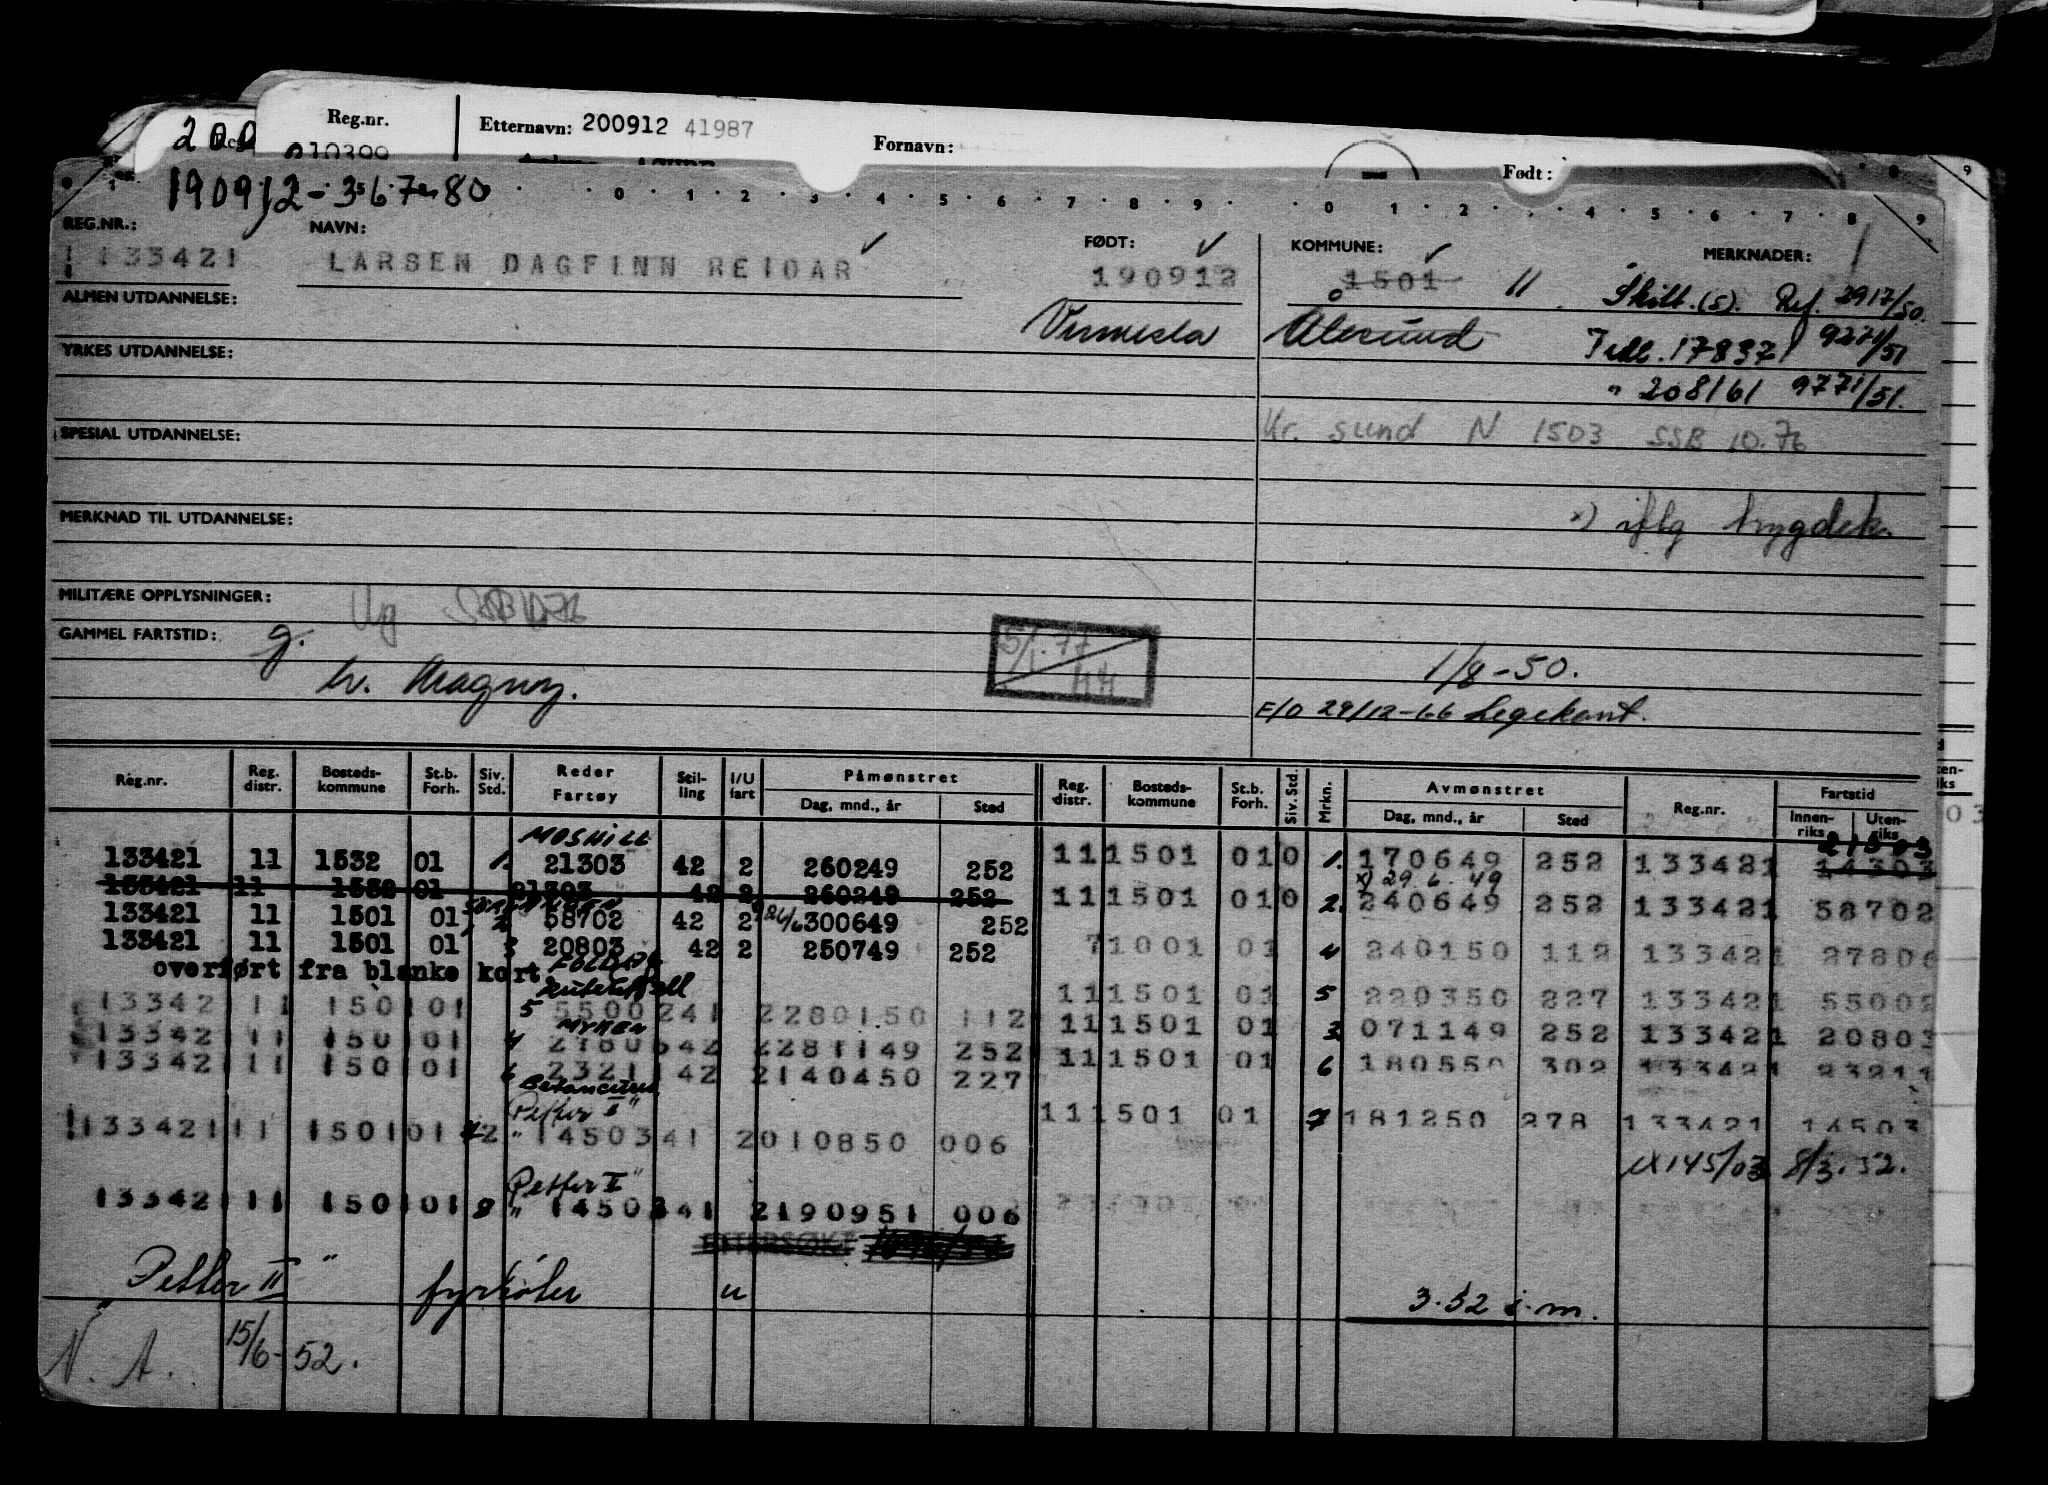 Reg.nr. Etternavn: 200912 41987 Fornavn: Født:
200
190912-36780
REG.NR.: NAVN: FØDT: KOMMUNE: MERKNADER:
133421 LARSEN DAGFINN REIDAR 190912 1501 11 Skilt.(s). Ref. 2917/50.
ALMEN UTDANNELSE:
Ålesund Tidl. 178371 9271/51
YRKES UTDANNELSE:
" 208161 9771/51.
SPESIAL UTDANNELSE: Kr. sund N 1503 SSB 10.76
MERKNAD TIL UTDANNELSE: x) iflg trygdek.
MILITÆRE OPPLYSNINGER: Ug
GAMMEL FARTSTID: g. 5/1.77
hv. Magnoy. 1/8-50.
E/O 29/12-66 Legekont.
Reg.nr. Reg. distr. Bosteds-kommune St.b. Forh. Siv. Std. Reder Fartøy Stil-ling I/U fart Påmønstret Dag, mnd., år Sted Reg. distr. Bosteds-kommune St.b. Forh. Siv. Std. Mrkn. Avmønstret Dag, mnd., år Sted Reg.nr. Fartstid Innen-riks Uten-riks
MOSHILL 21303
133421 11 1532 01 1. 21303 42 2 260249 252 11 1501 01 0 1. 170649 252 133421 14303
x) 29.6.49
133421 11 1532 01 21303 42 2 260249 252 11 1501 01 0 2. 240649 252 133421 58702
133421 11 1501 01 2 58702 42 2 24/6 300649 252
133421 11 1501 01 3 20803 42 2 250749 252 7 1001 01 4 240150 112 133421 27806
overført fra blanke kort
13342 11 150 01 5 5500241 2280150 112 11 1501 01 5 220350 227 133421 55002
MYKEN
13342 11 150 01 4 2780642 2281149 252 11 1501 01 3 071149 252 133421 20803
13342 11 150 01 6 2321142 2140450 227 11 1501 01 6 180550 302 133421 23211
Betancuria
Petter II"
133421 11 1501 01 2 " 1450341 2010850 006 11 1501 01 7 181250 278 133421 14503
145/03 8/3.52.
Petter II"
13342 11 150 01 8 " 1450341 2190951 006
ETTERSØKT
"Petter II" fyrbøter u 3.52 i.m.
N. A. 15/6-52.